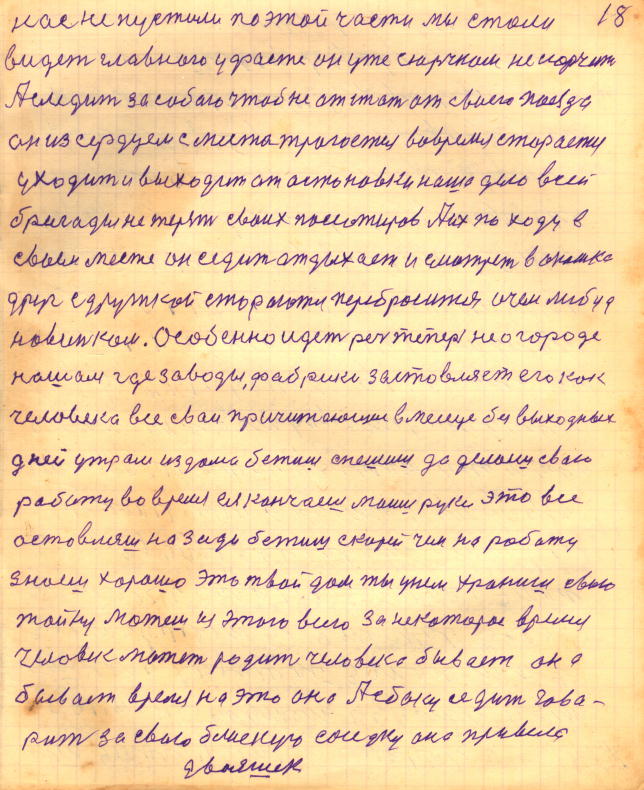 18
нас не пустили по этой части мы стали
видет главного у фасте он уже с юрчком не юрчит
А следит за собою чтоб не отстат от своего поезда
он из сердуем с места трогается вовремя старается
уходит и выходит от остоновки наша дело всей
бригады не терят своих посотиров Аих по ходу в
своем месте он седит отдыхает и смотрет в окошка
друг с дружкой стораютя перебросится о чем либуд
новинком. Особенно идет реч тепер не о городе
нашом где заводы, фабрики заставляет его как
человека все сваи причитающии в месеце без выходных
дней утрам из дома бетиш спешиш до делаш сваю
работу во время ея кончаеш маиш руки это все
оставляш на зади бетиш скорей чем на работу
знаеш хорошо это твой дом ты у нем храниш свою
тойну можеш из этого всего за некоторое время
человик может родит человека бывает она
бывает время на это она А сбоку седит гова-
рит за сваю близкую соседку она привела
двояшек